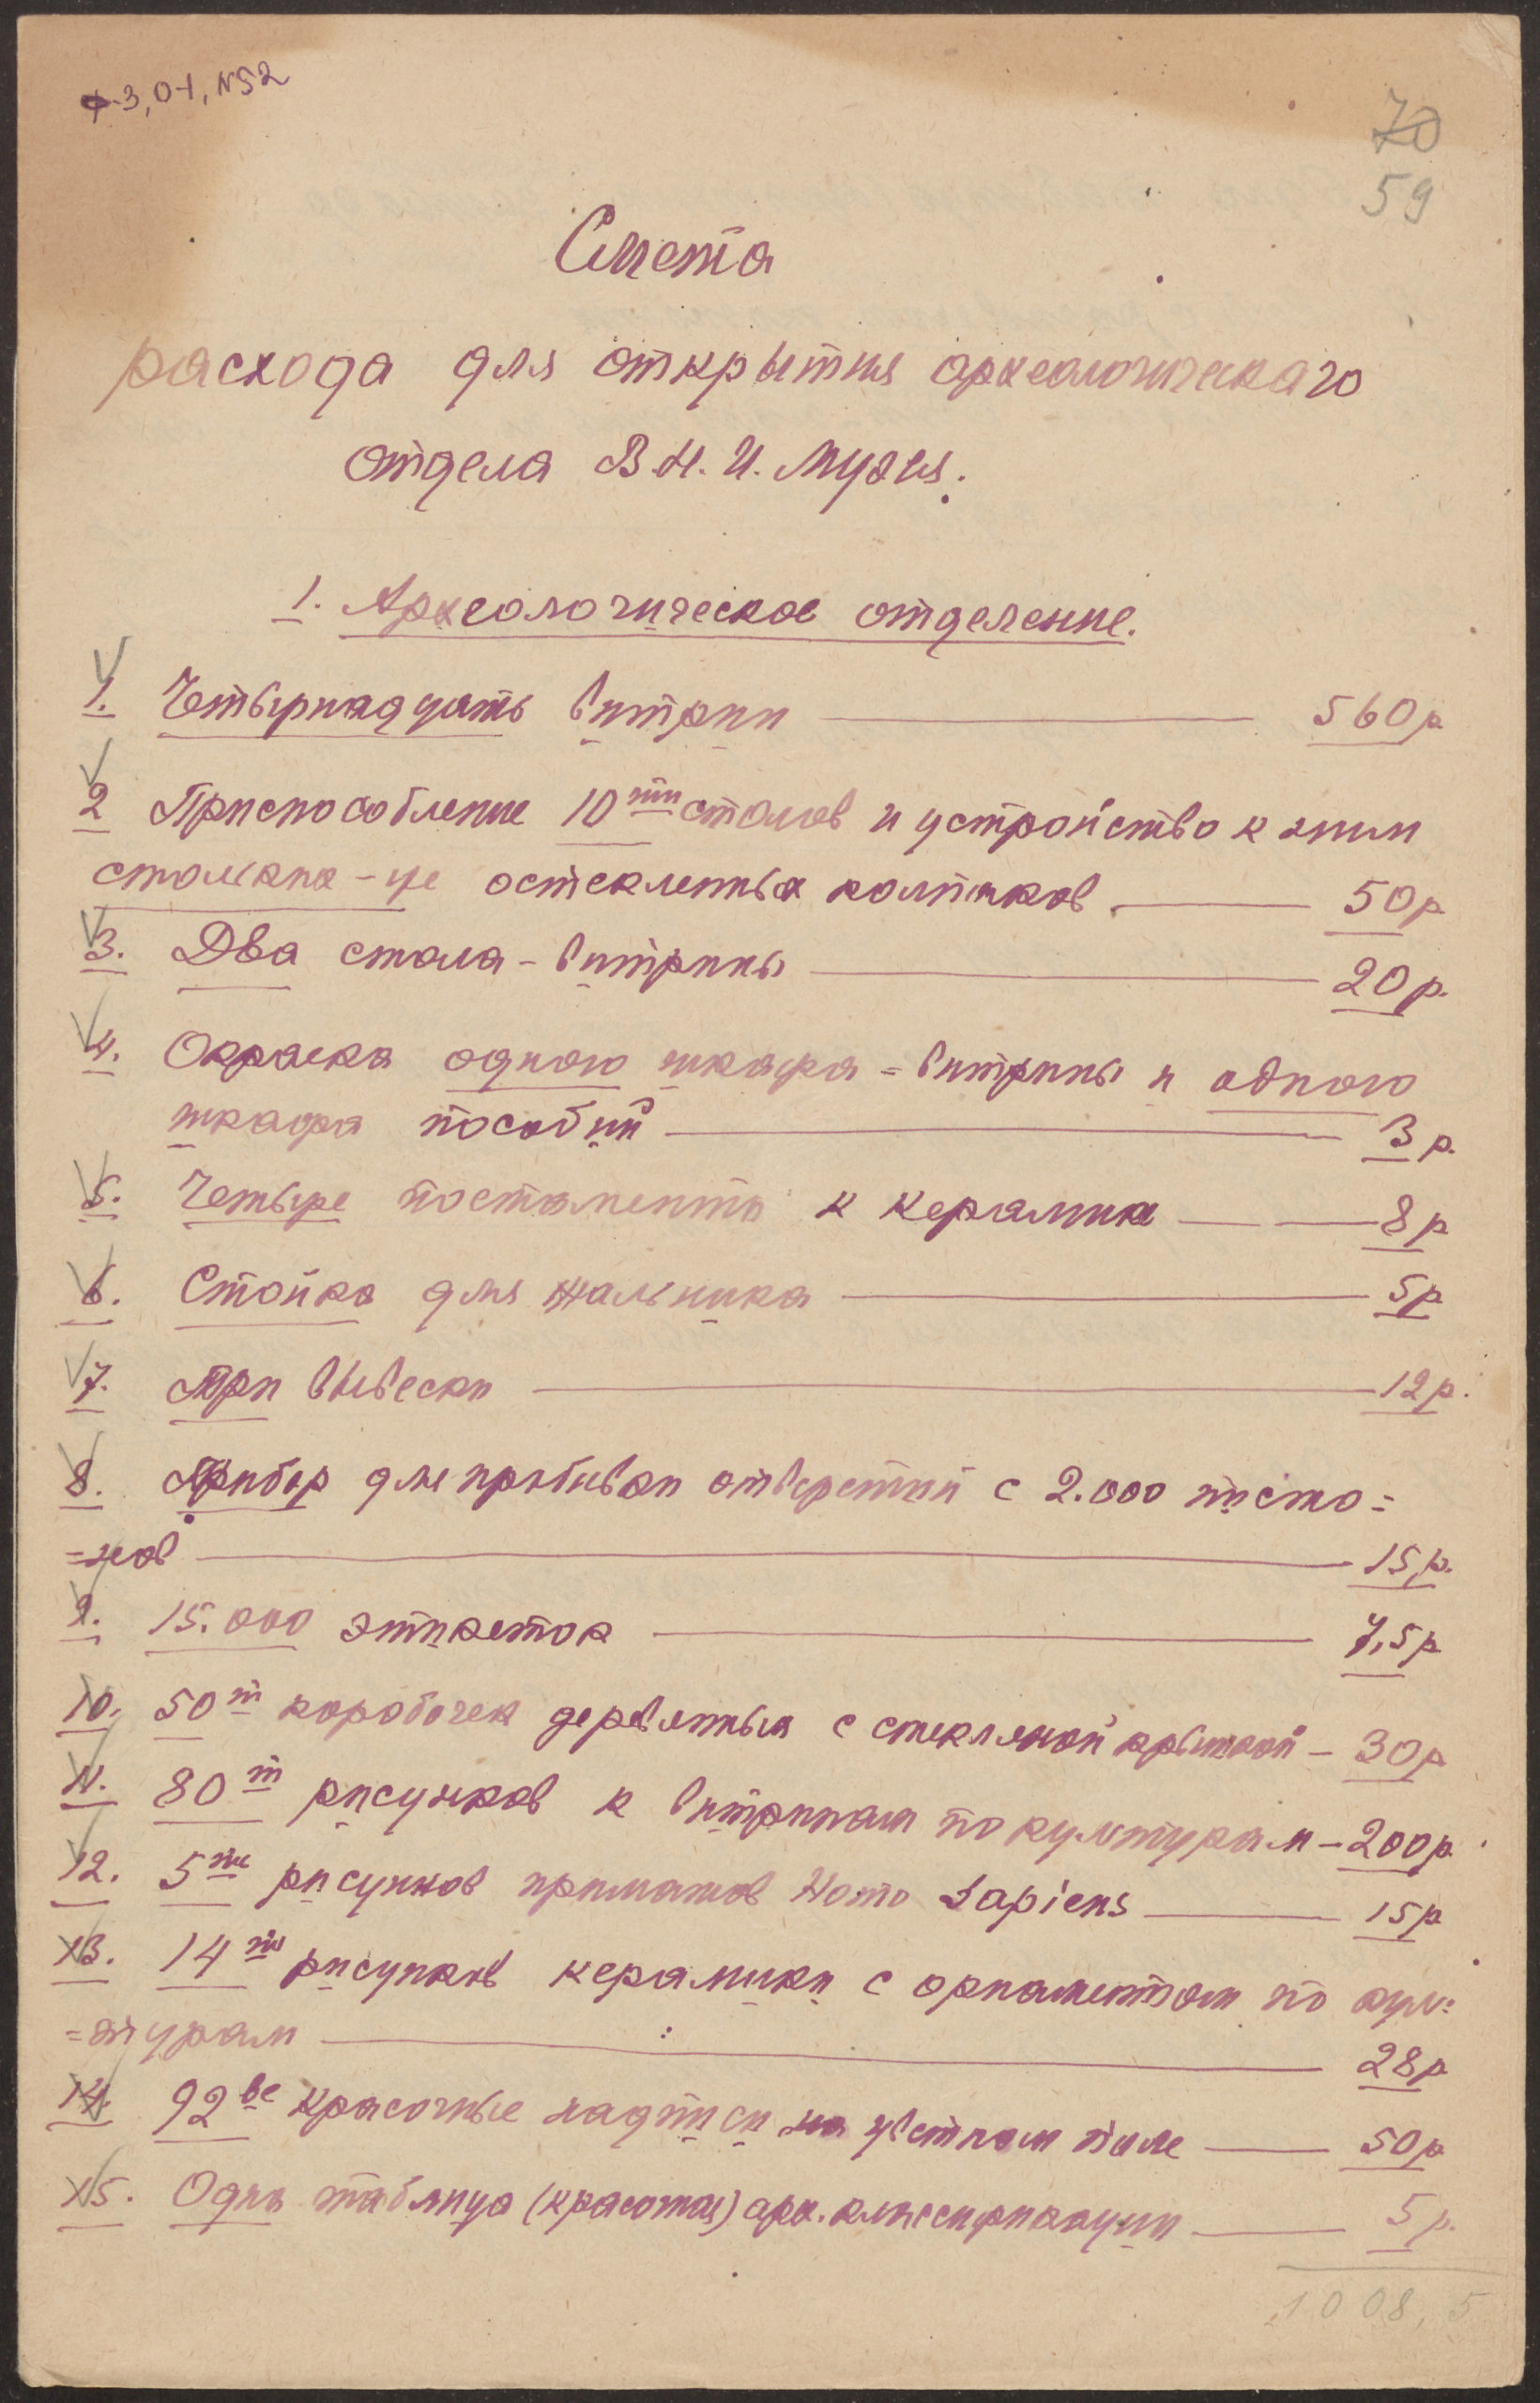 Ф-3, О-1, N52
70
59
Смета
расхода для открытия археологическаго
отдела В.Н.И. Музея.
1. Археологическое отделение.
1. Четырнадцать витрин — 560 р
2 Приспособление 10ти столов и устройство к ним
столько-же остекленных колпаков — 50 р
3. Два стола-витрины — 20 р.
4. Окраска одного шкафа=витрины и одного
шкафа пособий — 3 р.
5. Четыре постамента к керамике — 8 р
6. Стойка для жальника — 5 р
7. Три вывески — 12 р.
8. Прибор для пробивки отверстий с 2.000 писто=
=нов — 15 р.
9. 15.000 этикеток — 7,5 р
10. 50т коробочек деревянных с стекляной крышкой — 30 р
11. 80т рисунков к витринам по культурам — 200 р.
12. 5ть рисунков приматов Homo Sapiens — 15 р
13. 14ть рисунков керамики с орнаментом по куль=
=турам — 28 р
14. 92ве красочные надписи на цветном поле — 50 р
15. Одна таблица (красочная) арх. классификации — 5 р.
1008,5